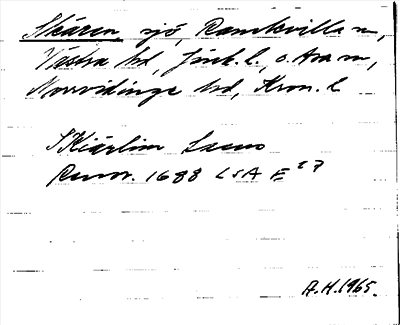 Skären sjö, Ramkvilla sn,
Västra hd, Jönk. l., o. Asa sn,
Norrvidinge hd, Kron. l.
Skiärlim Lacus
Rumor. 1688 LSA E 27
A.H. 1965.